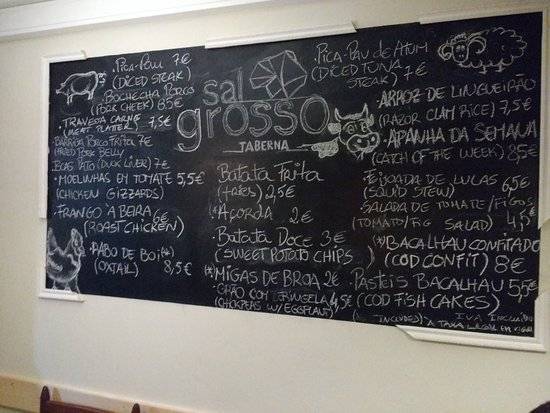 • Pica-Pau 7€
(Diced Steak)
• Bochecha Porco
(Pork Cheek) 8,5€
• Travessa Carne
(Meat Platter) 7,5€
• Barriga Porco Frita 7€
(Fried Pork Belly)
(Duck Liver) 7€
• Moelinhas em Tomate 5,5€
(Chicken Gizzards)
• Frango à Beira 6€
(Roast Chicken)
• Rabo de Boi (*)
(Oxtail) 8,5€
sal
grosso
TABERNA
Batata Frita
(Fries) 2,5€
(*) Açorda 2€
• Batata Doce 3€
(Sweet Potato Chips)
(*) Migas de Broa 2€
• Chão com Beringela 4,5€
(Chokpeas w/ Eggplant)
• Pica-Pau de Atum
(Diced Tuna
Steak) 7€
• Arroz de Lingueirão
(Razor Clam Rice) 7,5€
• Apanha da Semana
(Catch of the Week) 8,5€
Feijoada de Lulas
(Squid Stew) 6,5€
• Salada de Tomate/Figos
(Tomato/Fig Salad) 4,5€
(*) Bacalhau Confitado
(Cod Confit) 8€
• Pasteis Bacalhau 5,5€
(Cod Fish Cakes)
Included) IVA Incluído